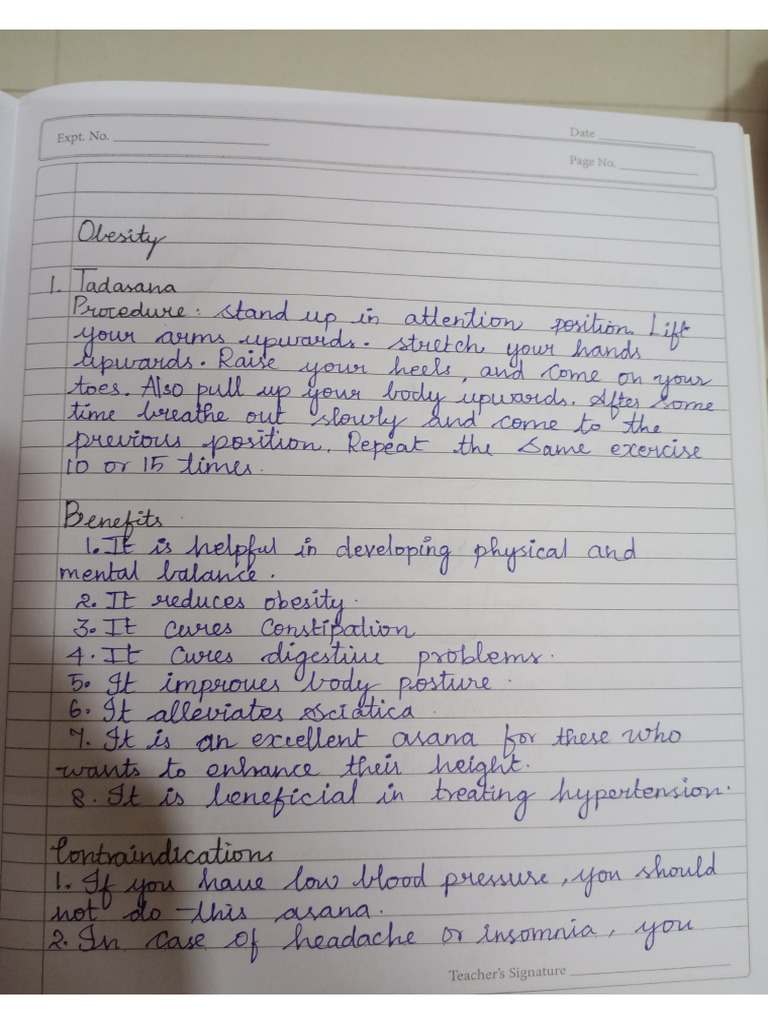 Expt. No.
Date
Page No.
Obesity
1. Tadasana
Procedure: Stand up in attention position. Lift
your arms upwards. stretch your hands
upwards. Raise your heels, and come on your
toes. Also pull up your body upwards. After some
time breathe out slowly and come to the
previous position. Repeat the same exercise
10 or 15 times.
Benefits
1. It is helpful in developing physical and
mental balance.
2. It reduces obesity.
3. It cures constipation
4. It cures digestive problems.
5. It improves body posture.
6. It alleviates sciatica.
7. It is an excellent asana for these who
wants to enhance their height.
8. It is beneficial in treating hypertension.
Contraindications
1. If you have low blood pressure, you should
not do this asana.
2. In case of headache or insomnia, you
Teacher's Signature